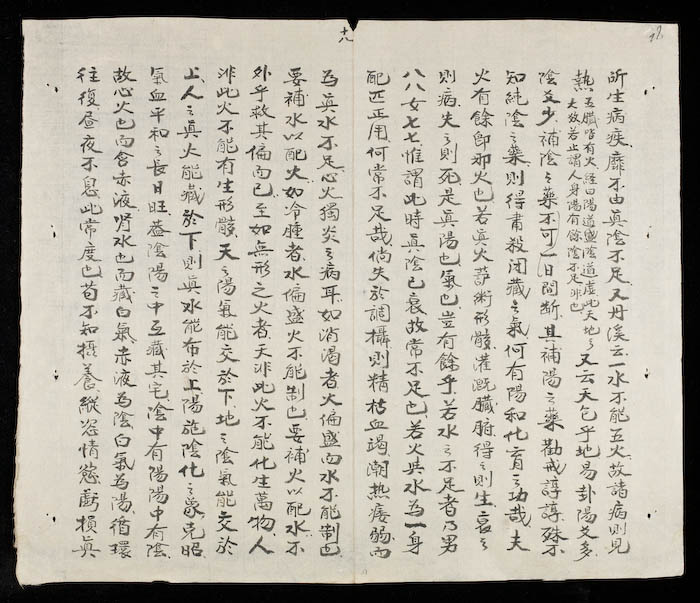 十八
所生病疾靡不由真陰不足又丹溪云一水不能五火故諸病則見
熱五臟皆有火經曰陽道盛陰道虛此天地之
大致若止謂人身陽有餘陰不足非也又云天包乎地易卦陽爻多
陰爻少補陰之藥不可一日間斷其補陽之藥勸戒諄諄殊不
知純陰之藥則得肅殺閉藏之氣何有陽和化育之功哉夫
火有餘即邪火也若真火薜術形骸灌溉臟腑得之則生衰之
則病失之則死是真陽也氣也豈有餘乎若水之不足者乃男
八八女七七惟謂此時真陰已衰故常不足也若火與水為一身
配匹正用何常不足哉倘失於調攝則精枯血竭潮熱痿弱而
為真水不足心火獨炎之病耳如消渴者火偏盛而水不能制也
要補水以配火如冷腫者水偏盛火不能制也要補火以配水不
外乎救其偏而已至如無形之火者天非此火不能化生萬物人
非此火不能有生形骸天之陽氣能交於下地之陰氣能交於
上人之真火能藏於下則真水能布於上陽施陰化之象克昭
氣血平和之長日旺蓋陰陽之中互藏其宅陰中有陽陽中有陰
故心火也而含赤液腎水也而藏白氣赤液為陰白氣為陽循環
往復晝夜不息此常度也苟不知攝養縱恣情慾虧損真